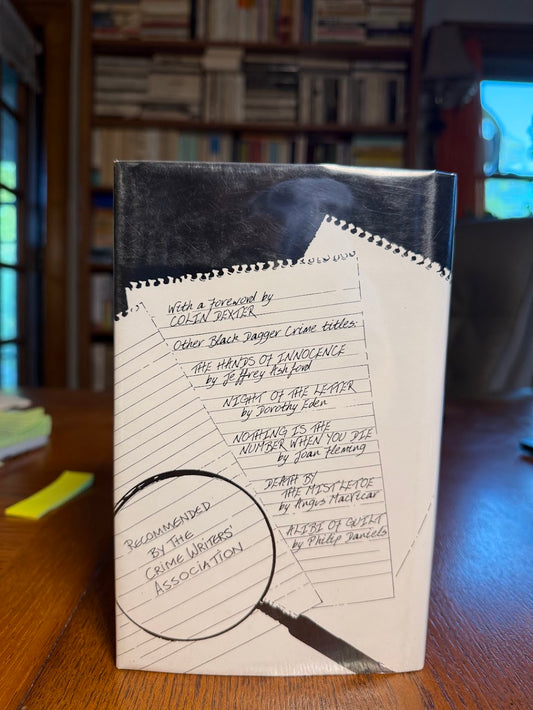 With a Foreword by
COLIN DEXTER
Other Black Dagger Crime titles:
THE HANDS OF INNOCENCE
by Jeffrey Ashford
NIGHT OF THE LETTER
by Dorothy Eden
NOTHING IS THE
NUMBER WHEN YOU DIE
by Joan Fleming
DEATH BY
THE MISTLETOE
by Angus MacVicar
ALIBI OF GUILT
by Philip Daniels
RECOMMENDED
BY THE
CRIME WRITERS'
ASSOCIATION